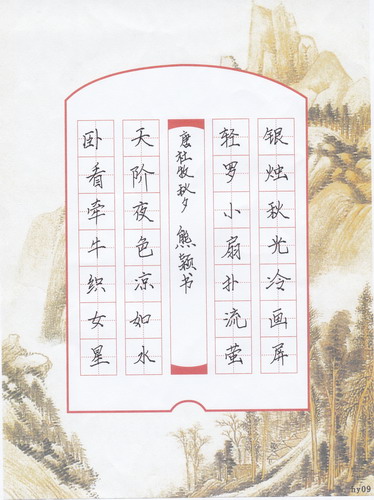 银烛秋光冷画屏
轻罗小扇扑流萤
唐杜牧秋夕 熊颖书
天阶夜色凉如水
卧看牵牛织女星
hy09